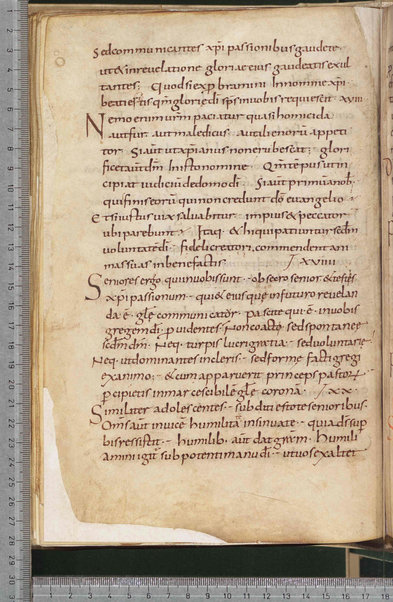 Sed communicantes xpi passionibus gaudete.
ut & in reuelatione gloriae eius gaudeatis exul
tantes; Quod si expbramini In nomine xpi.
beati estis qm glorię di sps in uobis requiescit. xviii
Nemo enim urm paciatur quasi homicida
aut fur. aut maledicus. aut alienorū appeti
tor. Si aut ut xpianus non erubescat; glori
ficet aut dm In isto nomine. Qm tempus ut in
cipiat iudiciū de domo di. Si aut primū a nob;
qui finis eorū qui non credunt di euangelio.
Et si iustus uix saluabitur. impius & peccator
ubi parebunt. Itaq; & hi qui patiuntur scdm
uoluntatē di. fideli creatori commendent ani
mas suas in benefactis. / xviiii
Seniores ergo qui in uobis sunt. obsecro senior & testis
xpi passionum. qui & eius quę in futuro reuelan
da ē. glę communicator. pascite qui. ē. in uobis
gregem di. prouidentes. Non coacte sed spontanee
scdm dm. Neq. turpis lucri gratia. sed uoluntarie.
Neq. ut dominantes in cleris. sed forme facti gregi
ex animo; & cum apparuerit princeps pastorꝝ.
percipietis inmarcescibilē glę coronā. / xx.
Similiter adolescentes. subditi estote senioribus.
Oms aut inuicē humilitatē insinuate. quia ds sup
bis resistit. humilib. aut dat grām. Humili
amini igit sub potenti manu di. ut uos exaltet